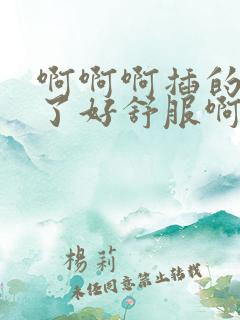 啊啊啊插的
了好舒服啊
楊莉
未经同意禁止转载